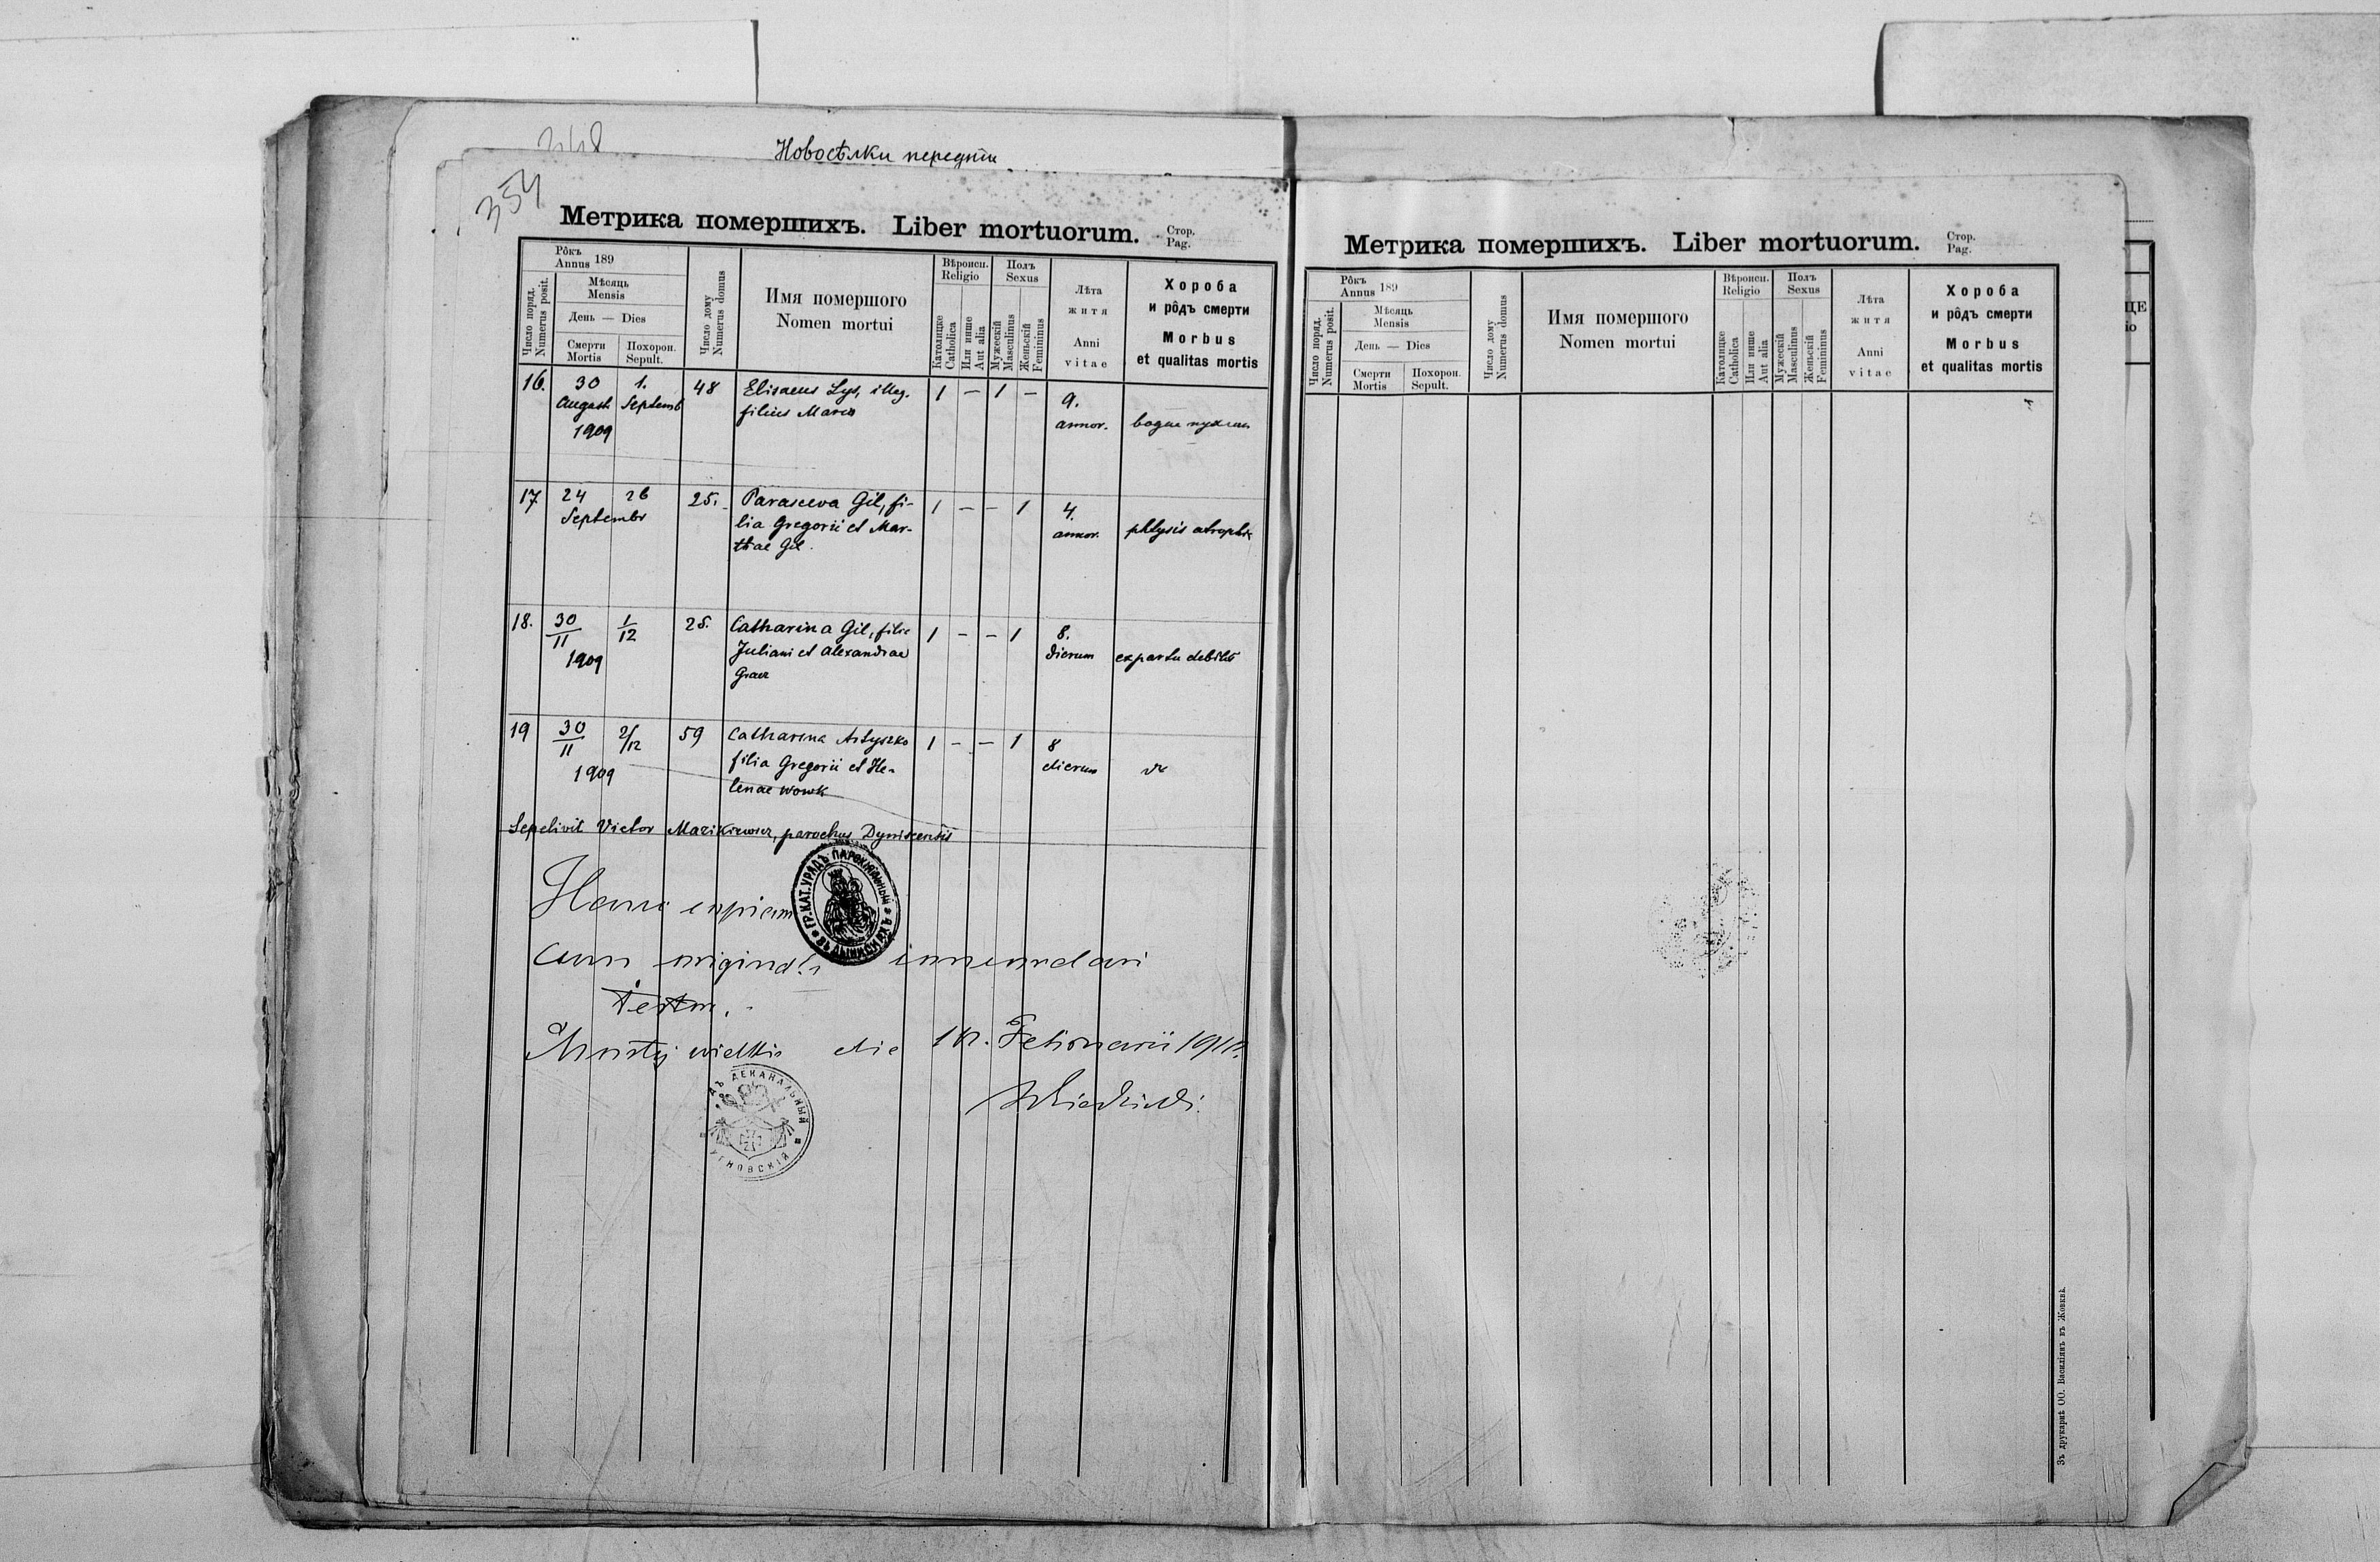 Новосѣлки передни
354
Метрика помершихъ. Liber mortuorum. Стор. Pag.
Число поряд. Numerus posit.
Рôкъ Annus 189
Мѣсяць Mensis
День — Dies
Смерти Mortis
Похорон. Sepult.
Число дому Numerus domus
Имя помершого Nomen mortui
Вѣроисп. Religio
Католицке Catholica
Или инше Aut alia
Полъ Sexus
Мужескій Masculinus
Женьскій Femininus
Лѣта житя Anni vitae
Хороба и рôдъ смерти Morbus et qualitas mortis
16. 30 August 1909 1. Septemb 48 Elisaeus Lys, illeg. 1 — 1 — 9. annor.
filius Maria
17 24 Septembr 26 25. Parasceva Gil, fi- 1 — — 1 4. annor. phtysis
lia Gregorii et Mar-
thae Gil.
18. 30/11 1909 1/12 25. Catharina Gil, filia 1 — — 1 8. dierum ex partu debilis
Juliani et Alexandrae
19 30/11 1909 2/12 59 Catharina Artyszko 1 — — 1 8 dierum
filia Gregorii et He-
lenae Wowk
Sepelivit Victor Mazikiewicz, parochus Dyniscensis
ГР.КАТ.УРАДЪ ПАРОХІЯЛЬНЫЙ
Hanc copiam
cum originali concordari
testor.
Mosty wielkie die Februarii
ДЕКАНАЛЬНЫЙ
Метрика помершихъ. Liber mortuorum. Стор. Pag.
Число поряд. Numerus posit.
Рôкъ Annus 189
Мѣсяць Mensis
День — Dies
Смерти Mortis
Похорон. Sepult.
Число дому Numerus domus
Имя помершого Nomen mortui
Вѣроисп. Religio
Католицке Catholica
Или инше Aut alia
Полъ Sexus
Мужескій Masculinus
Женьскій Femininus
Лѣта житя Anni vitae
Хороба и рôдъ смерти Morbus et qualitas mortis
Зъ друкарнѣ ОО. Василіянъ въ Жовквѣ.